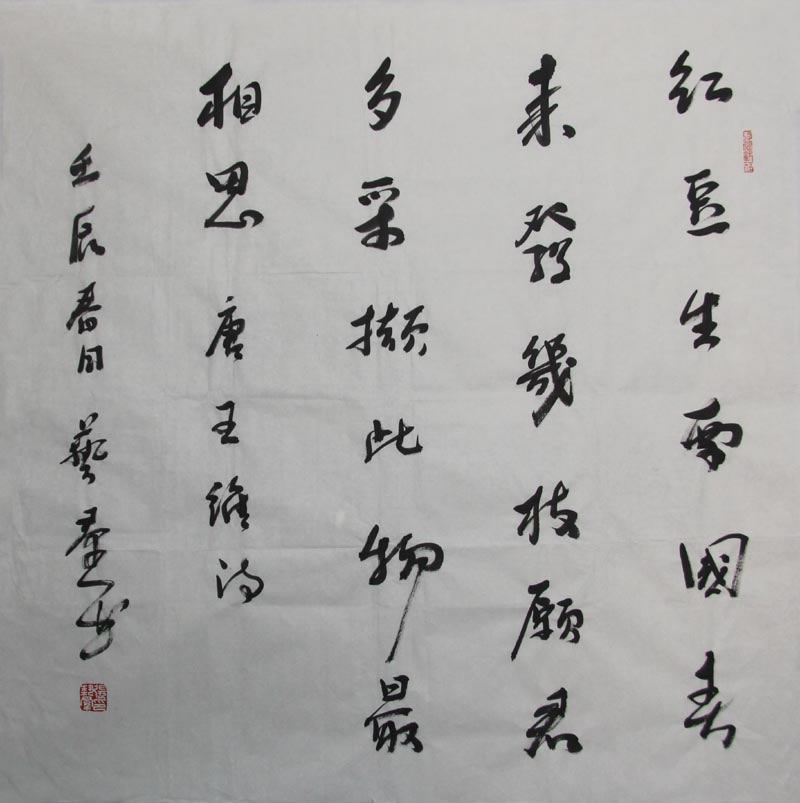 红豆生南國春
来發幾枝願君
多采擷此物最
相思 唐王維詩
壬辰春日 藝 书